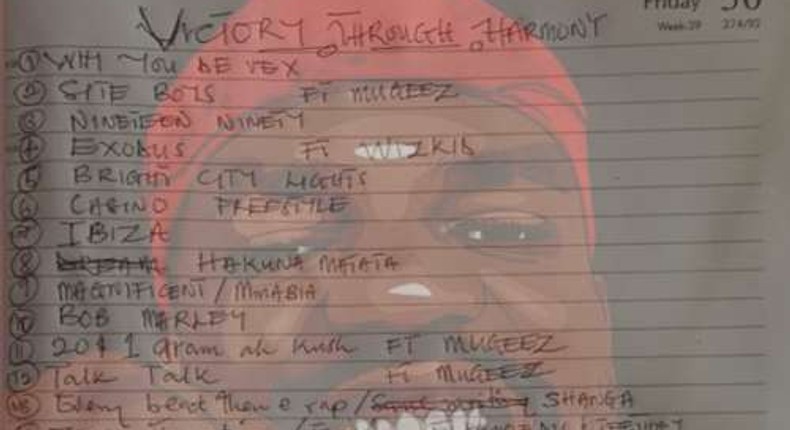 Friday 30
Week 39 274/92
VICTORY THROUGH HARMONY
① WHY YOU DE VEX
② SITE BOYS FT MUGEEZ
③ NINETEEN NINETY
④ EXODUS FT WIZKID
⑤ BRIGHT CITY LIGHTS
⑥ CASINO FREESTYLE
⑦ IBIZA
⑧ HAKUNA MATATA
⑨ MAGNIFICENT / MMABIA
⑩ BOB MARLEY
⑪ 20 & 1 gram ah kush FT MUGEEZ
⑫ Talk Talk Ft MUGEEZ
⑬ Every beat then e rap / SHANGA